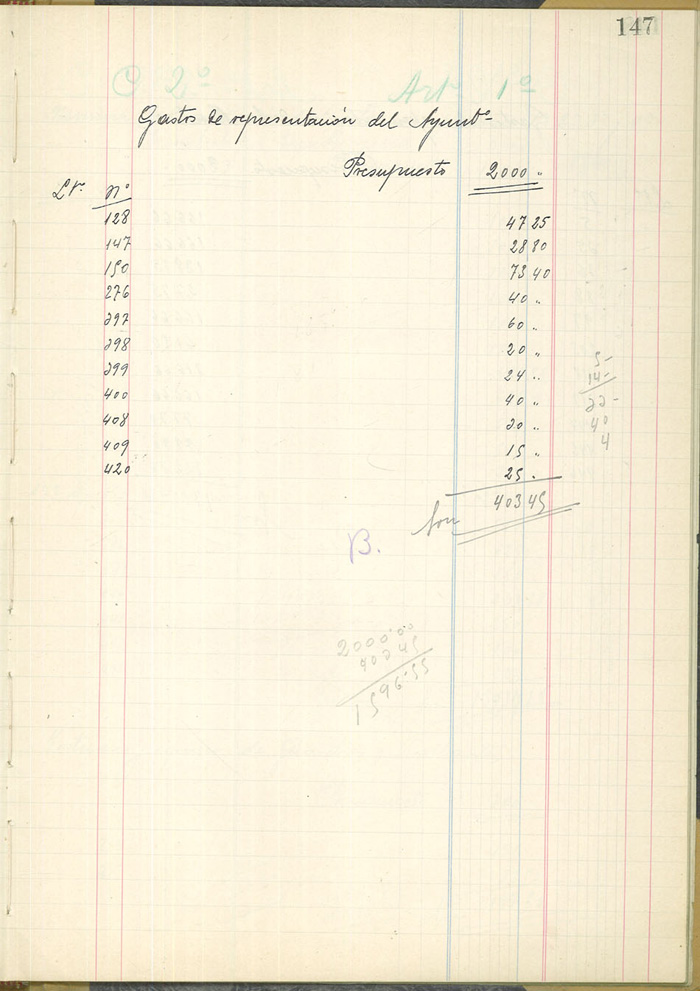 147
C 2º Art 1º
Gastos de representación del Ayuntº
Presupuesto 2000 "
Lº Nº
128 47 25
147 28 80
150 73 40
276 40 "
297 60 "
298 20 "
299 24 "
400 40 "
408 30 "
409 15 "
420 25 "
Son 403 45
5-
14-
22-
40
4
B.
2000.00
403 45
1596.55